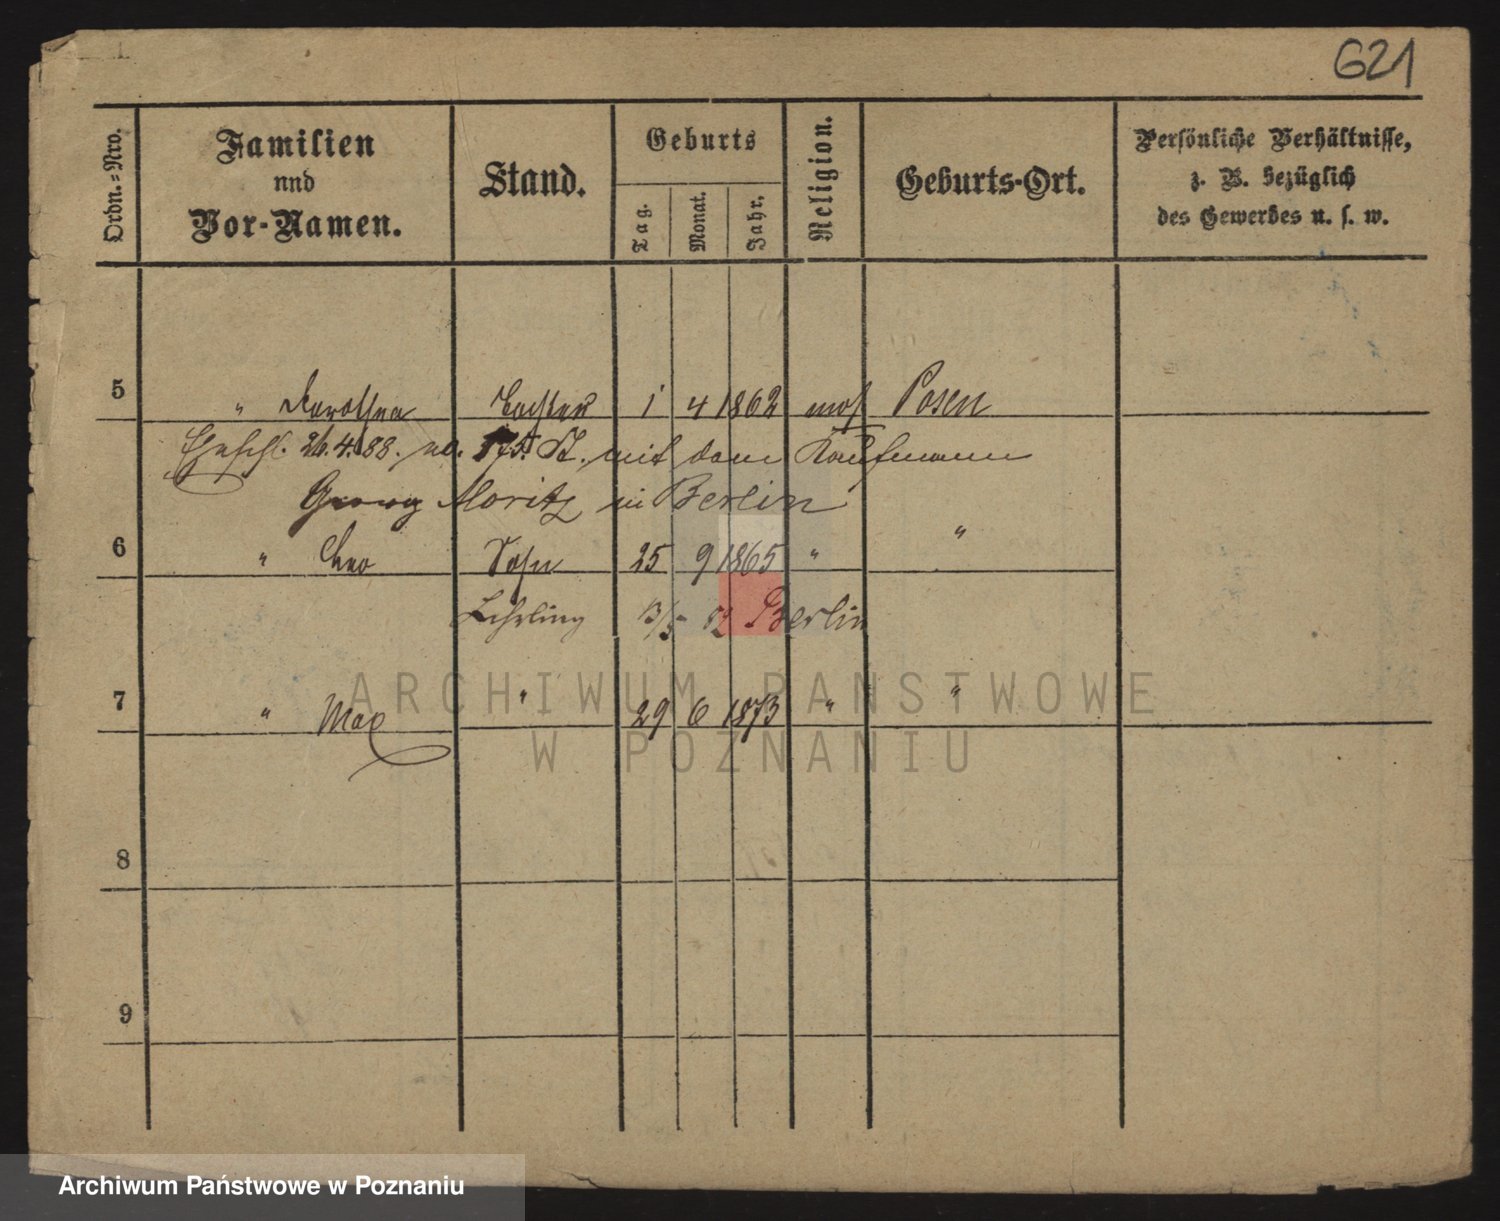 621
Ordn.-Nro.
Familien
und
Vor-Namen.
Stand.
Geburts
Tag.
Monat.
Jahr.
Religion.
Geburts-Ort.
Persönliche Verhältnisse,
z. B. bezüglich
des Gewerbes u. s. w.
5 " Dorothea Tochter 1 4 1862 mos Posen
Eheschl. 26.4.88. No. 175. St. mit dem Kaufmann
Georg Moritz in Berlin
6 " Leo Sohn 25 9 1865 " "
Lehrling 13/5 82 Berlin
7 " Max " 29 6 1873 " "
8
9
ARCHIWUM PAŃSTWOWE
W POZNANIU
Archiwum Państwowe w Poznaniu